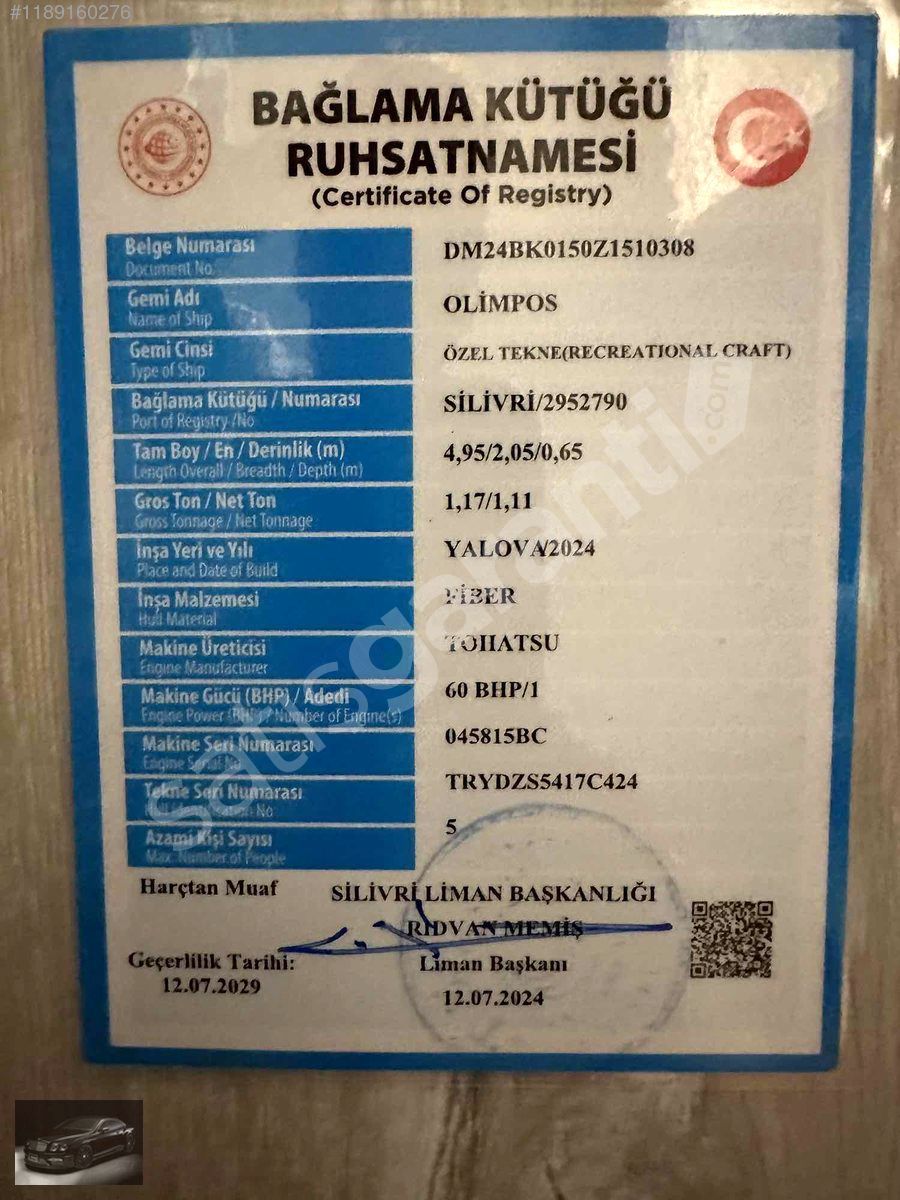 #1189160276
BAĞLAMA KÜTÜĞÜ
RUHSATNAMESİ
(Certificate Of Registry)
Belge Numarası
Document No.
DM24BK0150Z1510308
Gemi Adı
Name of Ship
OLİMPOS
Gemi Cinsi
Type of Ship
ÖZEL TEKNE(RECREATIONAL CRAFT)
Bağlama Kütüğü / Numarası
Port of Registry /No
SİLİVRİ/2952790
Tam Boy / En / Derinlik (m)
Length Overall / Breadth / Depth (m)
4,95/2,05/0,65
Gros Ton / Net Ton
Gross Tonnage / Net Tonnage
1,17/1,11
İnşa Yeri ve Yılı
Place and Date of Build
YALOVA/2024
İnşa Malzemesi
Hull Material
FİBER
Makine Üreticisi
Engine Manufacturer
TOHATSU
Makine Gücü (BHP) / Adedi
Engine Power (BHP) / Number of Engine(s)
60 BHP/1
Makine Seri Numarası
Engine Serial No
045815BC
Tekne Seri Numarası
Hull Identification No
TRYDZS5417C424
Azami Kişi Sayısı
Max. Number of People
5
Harçtan Muaf
SİLİVRİ LİMAN BAŞKANLIĞI
RIDVAN MEMİŞ
Liman Başkanı
12.07.2024
Geçerlilik Tarihi:
12.07.2029
satisgaranti.com